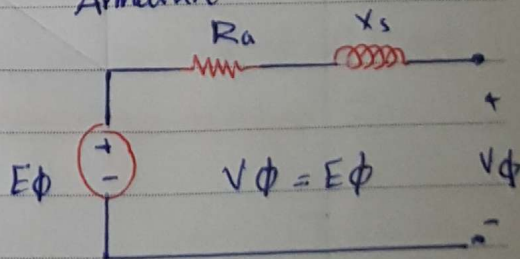 Ra Xs
+
+
Eφ Vφ = Eφ Vφ
-
-